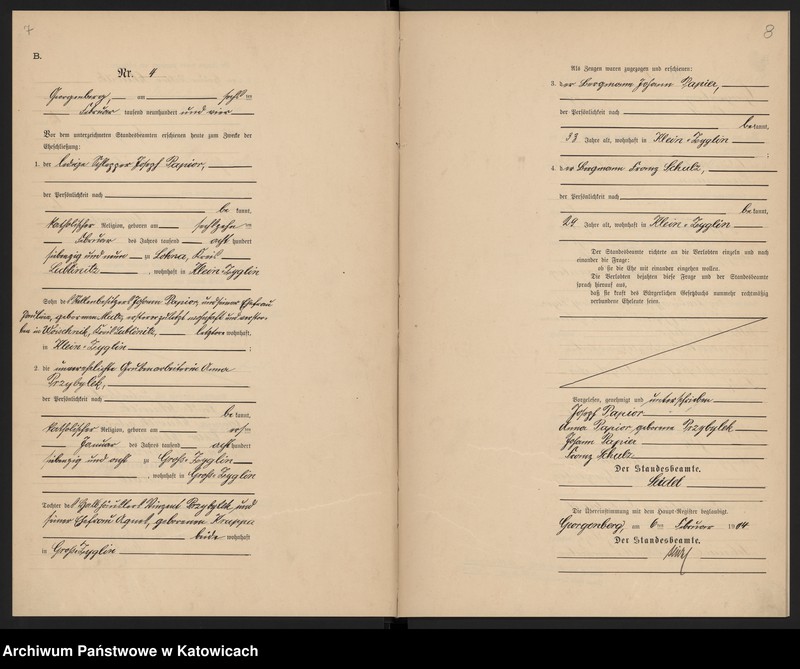 7
B.
Nr. 4
Georgenberg, am sechs ten
Februar tausend neunhundert und vier
Vor dem unterzeichneten Standesbeamten erschienen heute zum Zwecke der
Eheschließung:
1. der ledige Schlepper Josef Papior,
der Persönlichkeit nach
be kannt,
katholischer Religion, geboren am sechszehn ten
Februar des Jahres tausend acht hundert
siebenzig und neun zu Lohna, Kreis
Lublinitz, wohnhaft in Klein Zyglin
Sohn des Stellenbesitzers Johann Papior, und seiner Ehefrau
Paulina, geborenen zuletzt wohnhaft und verstor-
ben in Woischnik, Kreis Lublinitz, letztere wohnhaft
in Klein-Zyglin ;
2. die unverehelichte Grubenarbeiterin Anna
Przybylek,
der Persönlichkeit nach
be kannt,
katholischer Religion, geboren am ersten
Januar des Jahres tausend acht hundert
siebenzig und acht zu Groß-Zyglin
, wohnhaft in Groß-Zyglin
Tochter des Vinzent Przybylek und
seiner Ehefrau Agnes, geborenen Kruppa
beide wohnhaft
in Groß-Zyglin
8
Als Zeugen waren zugezogen und erschienen:
3. der Bergmann Johann Papier,
der Persönlichkeit nach
be kannt,
33 Jahre alt, wohnhaft in Klein-Zyglin
;
4. der Bergmann Franz Schulz,
der Persönlichkeit nach
be kannt,
29 Jahre alt, wohnhaft in Klein-Zyglin
Der Standesbeamte richtete an die Verlobten einzeln und nach
einander die Frage:
ob sie die Ehe mit einander eingehen wollen.
Die Verlobten bejahten diese Frage und der Standesbeamte
sprach hierauf aus,
daß sie kraft des Bürgerlichen Gesetzbuchs nunmehr rechtmäßig
verbundene Eheleute seien.
Vorgelesen, genehmigt und unterschrieben
Josef Papior
Anna Papior geborene Przybylek
Johann Papier
Franz Schulz
Der Standesbeamte.
Seidel
Die Übereinstimmung mit dem Haupt-Register beglaubigt.
Georgenberg, am 6 ten Februar 1904
Der Standesbeamte.
Archiwum Państwowe w Katowicach